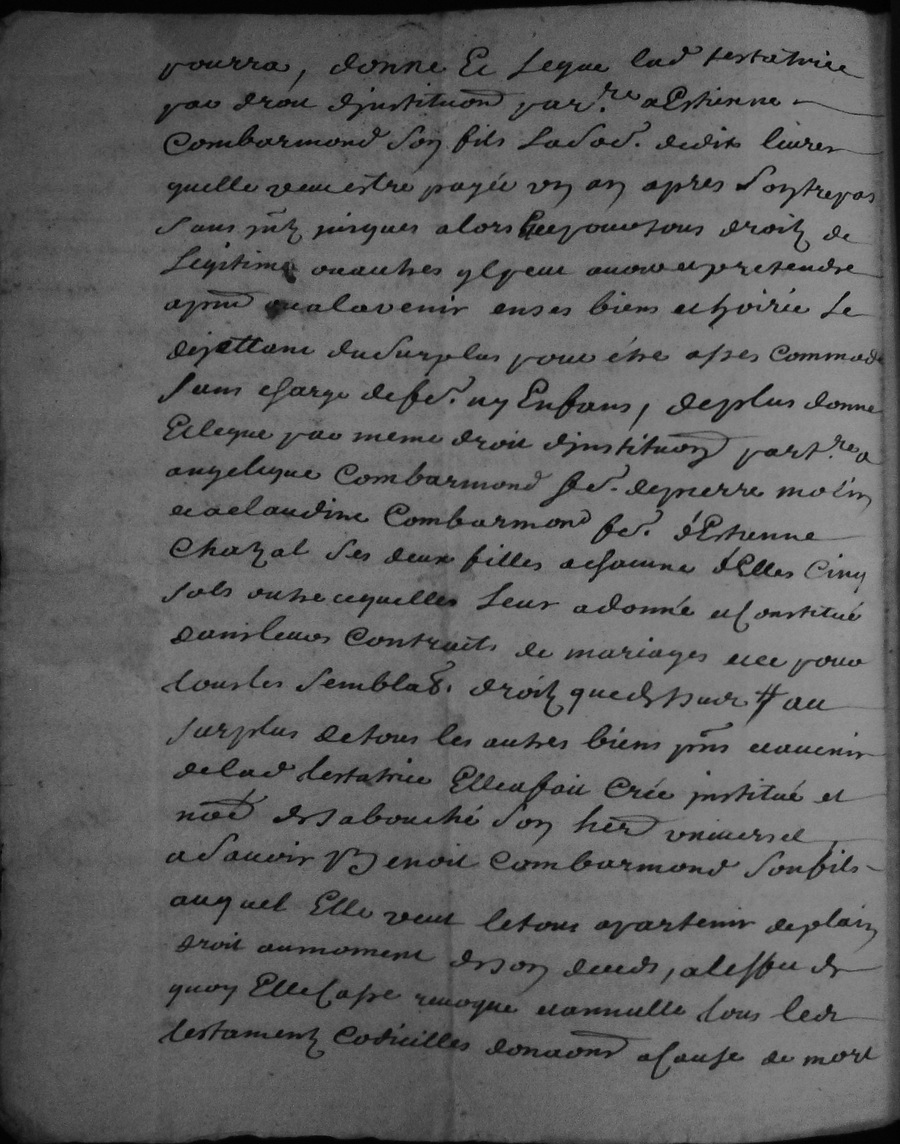 pourra, donne Et Legue lad testatrice
par droit djnstituon par.re a Estienne
Combarmond Son fils La so.e de dix livres
quelle veut estre payée un an apres Son trepas
Sans jnt. jusques alors Et ce pour tous droitz de
Legitime ou autres yl peut avoir et pretendre
apnt ou a lavenir en ses biens et hoirie Le
dejettant du Surplus pour étre asses commode
Sans charge de fe. ny Enfans, de plus donne
Et legue par meme droit djnstituon part.re a
angelique Combarmond fe. de pierre molin
et a claudine Combarmond fe. d'Estienne
Chazal Ses deux filles a chacune d'Elles Cinq
sols outre ce quelles Leur a donné et Constitué
dans leurs Contracts de mariages et ce pour
tous les Semblab. droitz que dessus # au
surplus de tous les autres biens pnts et avenir
de lad testatrice Elle a fait Créé jnstitué et
nŏé de sa bouche Son herd universel
a Savoir Benoit Combarmond Son fils
auquel Elle veut le tout apartenir de plain
droit au moment de son deceds, a leffet de
quoy Elle Casse revoque et annulle tous
testamentz Codicilles donaons a Cause de mort